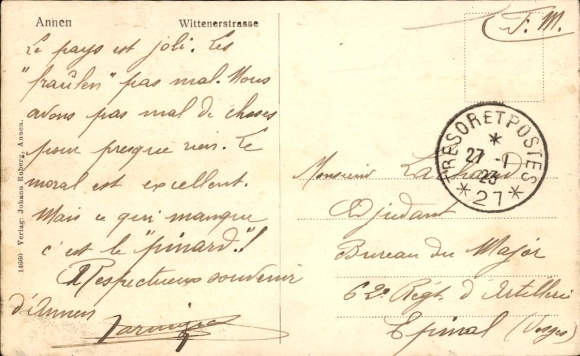 Annen Wittenerstrasse
Le pays est joli. Les
"fraülen" pas mal. Nous
avons pas mal de choses
pour presque rien. Le
moral est excellent.
Mais ce qui manque
c'est le "pinard"!
Respectueux souvenir
d'Annen
14660 Verlag: Johann Ruberg, Annen.
F. M.
TRESOR ET POSTES
27 -1
23
* 27 *
Monsieur
Adjudant
Bureau du Major
62e Régt d'Artillerie
Epinal (Vosges)